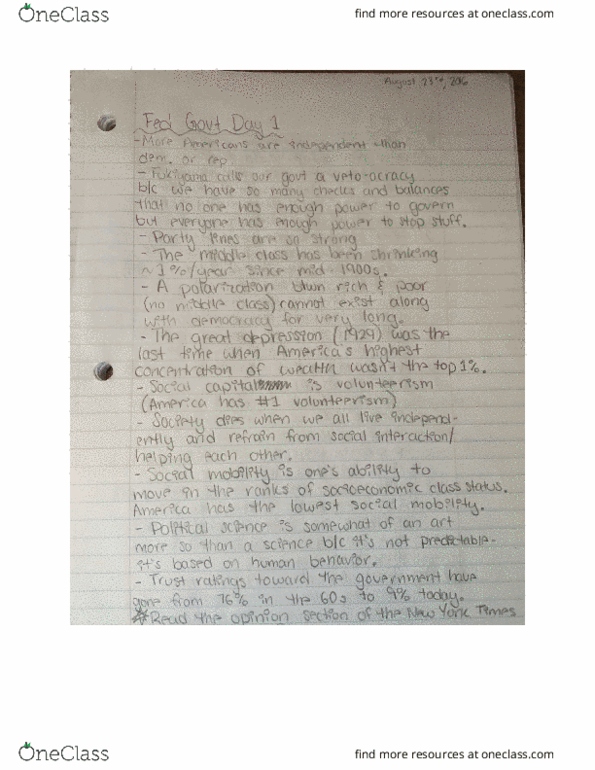 OneClass
find more resources at oneclass.com
August 23rd, 2016
Fed Govt Day 1
- More Americans are independent than
dem. or rep.
- Fukiyama calls our govt a veto-acracy
b/c we have so many checks and balances
that no one has enough power to govern
but everyone has enough power to stop stuff.
- Party lines are so strong
- The middle class has been shrinking
~1%/year since mid-1900s.
- A polarization btwn rich & poor
(no middle class) cannot exist along
with democracy for very long.
- The great depression (1929) was the
last time when America's highest
concentration of wealth wasn't the top 1%.
- Social capital is volunteerism
(America has #1 volunteerism)
- Society dies when we all live independ-
ently and refrain from social interaction/
helping each other.
- Social mobility is one's ability to
move in the ranks of socioeconomic class status.
America has the lowest social mobility.
- Political science is somewhat of an art
more so than a science b/c it's not predictable-
it's based on human behavior.
- Trust ratings toward the government have
gone from 76% in the 60s to 9% today.
* Read the opinion section of the New York Times
OneClass
find more resources at oneclass.com